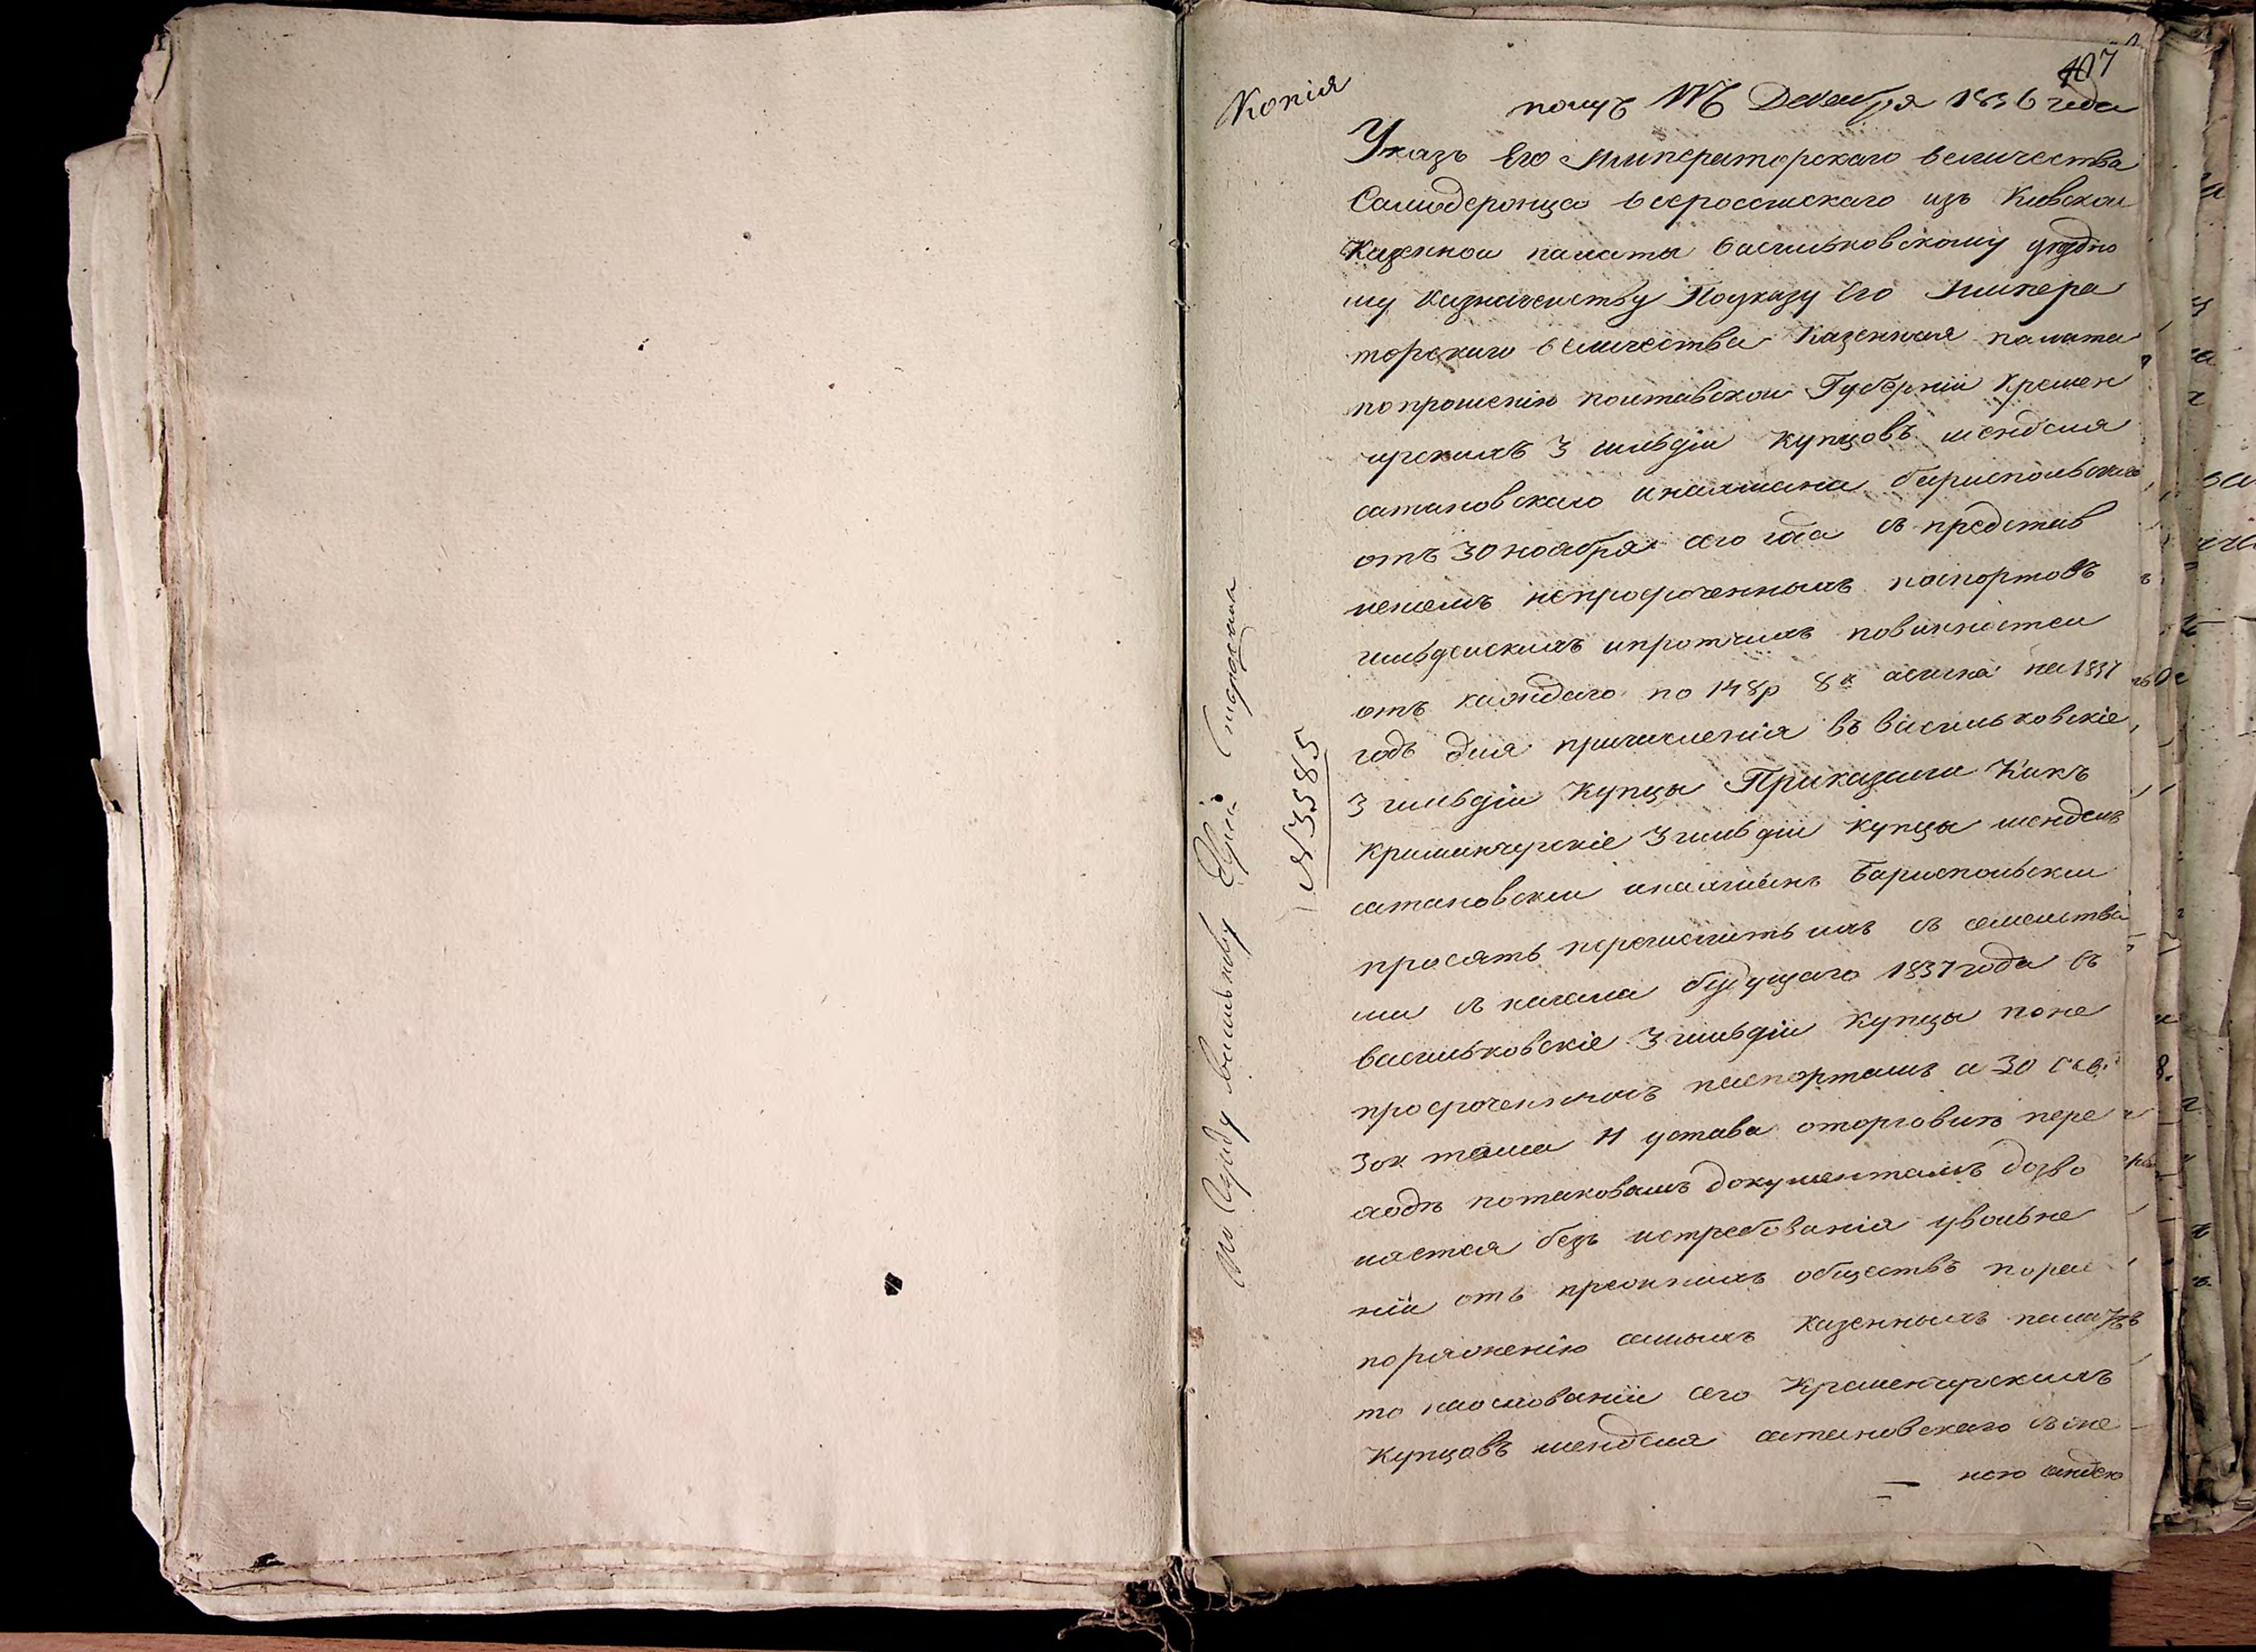 107
Копія
получ Декабря 1836 года
Указъ Его Императорскаго величества
Самодержца всероссискаго изъ Киевскои
Казеннои палаты васильковскому уездно
му казначеиству Поуказу Его Импера
торскаго величества Казенная палата
попрошенію полтавскои Губерніи Кремен
чугскихъ 3 гильдіи купцовъ менделя
сатановскаго икалмана бариспольскаго
отъ 30 ноября сего года съ представ
леніемъ непросроченныхъ паспортовъ
гильдеискихъ ипротчихъ повинностеи
отъ каждаго по 148р 8к на 1837
годъ для причисленія въ васильковскіе
3 гильдіи купцы Приказали Какъ
Кришинчугскіе 3 гильдіи купцы мендель
сатановскіи икалманъ Бариспольскіи
просятъ перечислить ихъ съ семеиства
ми съ начала будущаго 1837 года въ
васильковскіе 3 гильдіи купцы поне
просроченнымъ паспортамъ а 30
зак тома 11 устава оторговли пере
ходъ потаковымъ документамъ дозво
ляется безъ истребованія увольне
ніи отъ прежнихъ обществъ порас
поряженію самыхъ казенныхъ палатъ
то наоснованіи сего Кременчугскихъ
Купцовъ менделя сатановскаго сжe
ною
По васильковку
N 3585